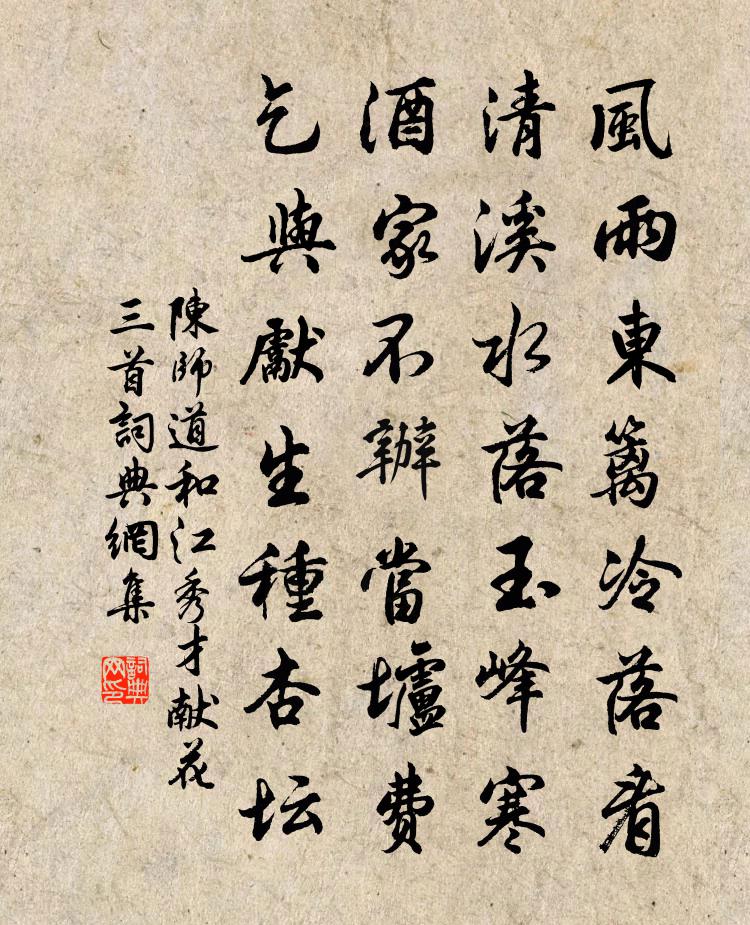 風雨東篱冷落看
清溪水落玉峰寒
酒家不辦當壚費
乞與獻生種杏坛
陳師道和江秀才献花
三首詞典網集
詞典
网印